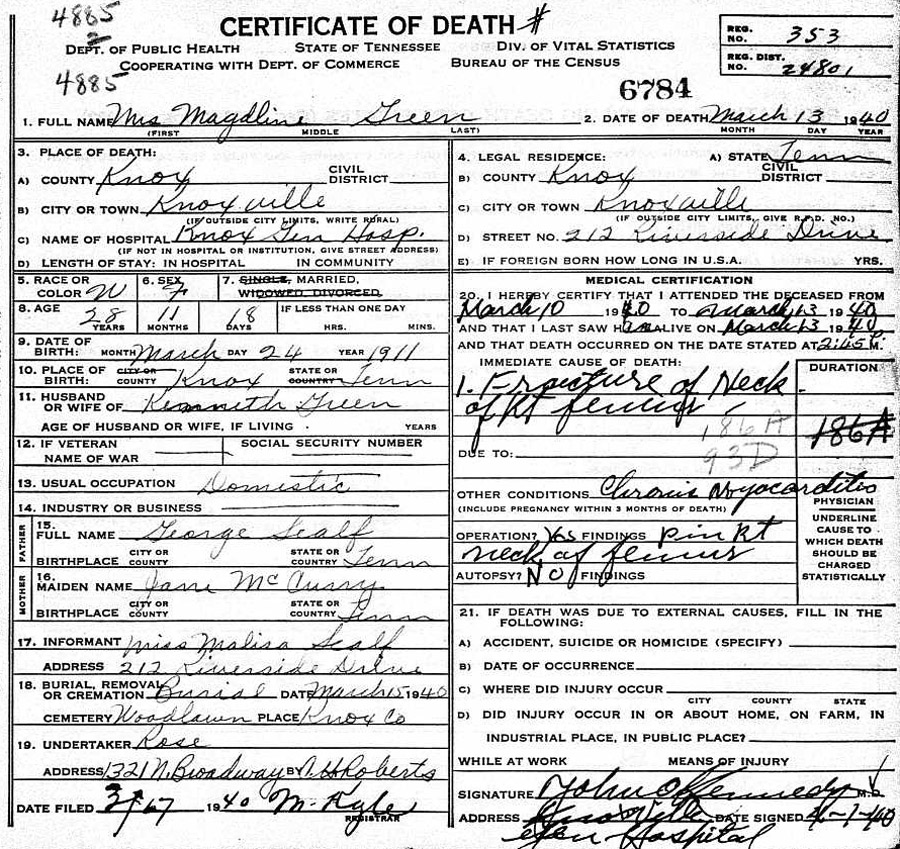 4885
2
4885
CERTIFICATE OF DEATH #
DEPT. OF PUBLIC HEALTH STATE OF TENNESSEE DIV. OF VITAL STATISTICS
COOPERATING WITH DEPT. OF COMMERCE BUREAU OF THE CENSUS
REG. NO. 353
REG. DIST. NO. 24801
6784
1. FULL NAME Mrs Magdline Green
(FIRST) MIDDLE LAST)
2. DATE OF DEATH March 13 1940
MONTH DAY YEAR
3. PLACE OF DEATH:
A) COUNTY Knox CIVIL DISTRICT
B) CITY OR TOWN Knoxville
(IF OUTSIDE CITY LIMITS, WRITE RURAL)
C) NAME OF HOSPITAL Knox Gen Hosp.
(IF NOT IN HOSPITAL OR INSTITUTION, GIVE STREET ADDRESS)
D) LENGTH OF STAY: IN HOSPITAL IN COMMUNITY
4. LEGAL RESIDENCE: A) STATE Tenn
B) COUNTY Knox CIVIL DISTRICT
C) CITY OR TOWN Knoxville
(IF OUTSIDE CITY LIMITS, GIVE R.F.D. NO.)
D) STREET NO. 212 Riverside Drive
E) IF FOREIGN BORN HOW LONG IN U.S.A. YRS.
5. RACE OR COLOR W
6. SEX F
7. SINGLE, MARRIED, WIDOWED, DIVORCED.
8. AGE 28 YEARS 11 MONTHS 18 DAYS
IF LESS THAN ONE DAY
HRS. MINS.
9. DATE OF BIRTH: MONTH March DAY 24 YEAR 1911
10. PLACE OF BIRTH: CITY OR COUNTY Knox STATE OR COUNTRY Tenn
11. HUSBAND OR WIFE OF Kenneth Green
AGE OF HUSBAND OR WIFE, IF LIVING YEARS
12. IF VETERAN NAME OF WAR
SOCIAL SECURITY NUMBER
13. USUAL OCCUPATION Domestic
14. INDUSTRY OR BUSINESS
FATHER
15. FULL NAME George Scalf
BIRTHPLACE CITY OR COUNTY STATE OR COUNTRY Tenn
MOTHER
16. MAIDEN NAME Jane McCurry
BIRTHPLACE CITY OR COUNTY STATE OR COUNTRY Tenn
17. INFORMANT Miss Malisa Scalf
ADDRESS 212 Riverside Drive
18. BURIAL, REMOVAL OR CREMATION Burial DATE March 15 1940
CEMETERY Woodlawn PLACE Knox Co
19. UNDERTAKER Rose
ADDRESS 1321 N. Broadway BY Roberts
DATE FILED 1940 M. Kyle
REGISTRAR
MEDICAL CERTIFICATION
20. I HEREBY CERTIFY THAT I ATTENDED THE DECEASED FROM
March 10 1940 TO March 13 1940
AND THAT I LAST SAW ALIVE ON March 13 1940
AND THAT DEATH OCCURRED ON THE DATE STATED AT 2:45 P.M.
IMMEDIATE CAUSE OF DEATH: DURATION
1. Fracture of Neck
of Rt femur
186A
93D
186A
DUE TO:
OTHER CONDITIONS Chronic Myocarditis
(INCLUDE PREGNANCY WITHIN 3 MONTHS OF DEATH)
PHYSICIAN
UNDERLINE CAUSE TO WHICH DEATH SHOULD BE CHARGED STATISTICALLY
OPERATION? Yes FINDINGS pin Rt
neck of femur
AUTOPSY? NO FINDINGS
21. IF DEATH WAS DUE TO EXTERNAL CAUSES, FILL IN THE
FOLLOWING:
A) ACCIDENT, SUICIDE OR HOMICIDE (SPECIFY)
B) DATE OF OCCURRENCE
C) WHERE DID INJURY OCCUR
CITY COUNTY STATE
D) DID INJURY OCCUR IN OR ABOUT HOME, ON FARM, IN
INDUSTRIAL PLACE, IN PUBLIC PLACE?
WHILE AT WORK MEANS OF INJURY
SIGNATURE John O Kennedy M.D.
ADDRESS Knoxville DATE SIGNED
Gen Hospital